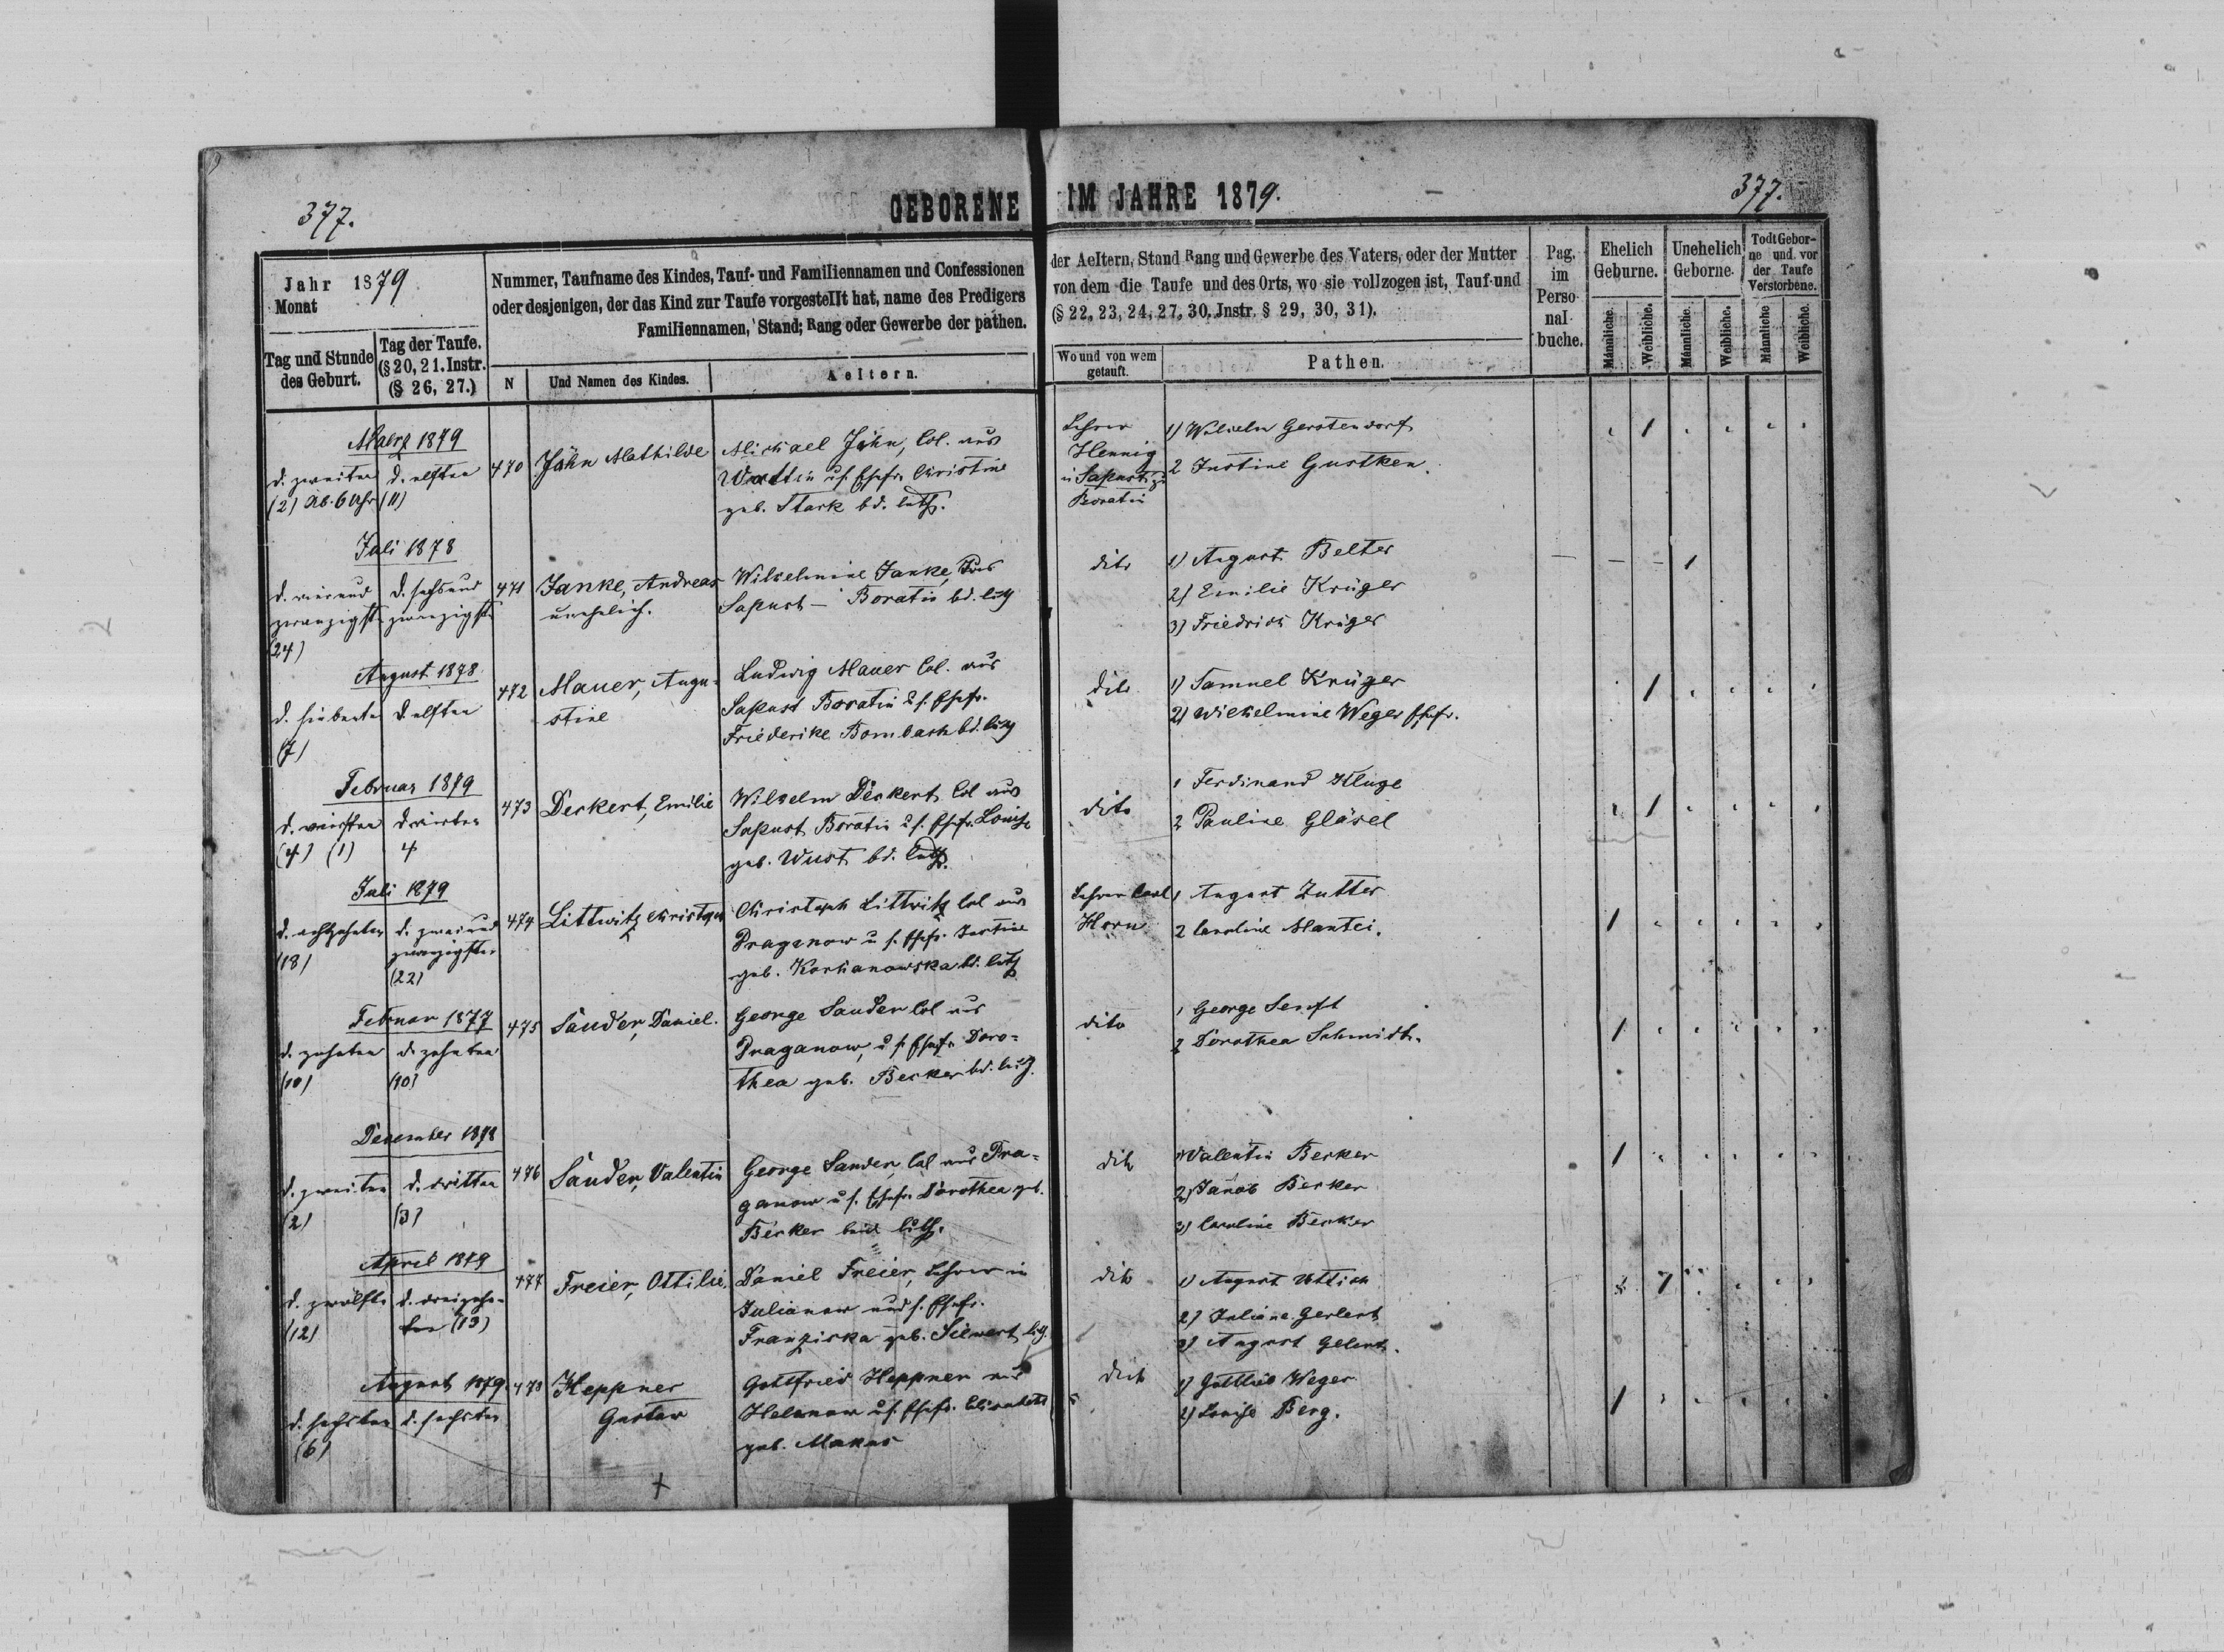 377.
GEBORENE IM JAHRE 1879.
377.
Jahr 1879
Monat
Tag und Stunde des Geburt.
Tag der Taufe. (§ 20, 21. Instr. (§ 26, 27.)
Nummer, Taufname des Kindes, Tauf- und Familiennamen und Confessionen
oder desjenigen, der das Kind zur Taufe vorgestellt hat, name des Predigers
Familiennamen, Stand; Rang oder Gewerbe der pathen.
N
Und Namen des Kindes.
Aeltern.
der Aeltern, Stand Rang und Gewerbe des Vaters, oder der Mutter
von dem die Taufe und des Orts, wo sie vollzogen ist, Tauf- und
(§ 22, 23, 24, 27, 30. Jnstr. § 29, 30, 31).
Wo und von wem getauft.
Pathen.
Pag. im Perso- nal- buche.
Ehelich Geburne.
Unehelich Geborne.
Todt Gebor- ne und vor der Taufe Verstorbene.
Männliche.
Weibliche.
Männliche.
Weibliche.
Männliche
Weibliche.
Maerz 1879
d. zweiten
(2) Ab. 6 Uhr
d. elften
(11)
470
Jähn Mathilde
Michael Jähn, Col. aus
Wattin u s. Ehefr. Christine
geb. Stark bd. luth.
Lehrer
Hennig
in Sapust
Boratin
1) Wilhelm Gerstendorf
2 Justine Gustken.
Juli 1878
d. vierund
zwanzigst
(24)
d. sechsund
zwanzigst
471
Janke, Andreas
unehelich.
Wilhelmine Janke, aus
Sapust - Boratin bd. luth
dito
1) August Belter
2) Emilie Krüger
3) Friedrich Krüger
August 1878
d. siebente
(7)
d. elften
472
Mauer, Augu-
stine
Ludwig Mauer Col. aus
Sapust Boratin u s. Ehefr.
Friederike Bombach bd. luth
dito
1) Samuel Krüger
2) Wilhelmine Weger Ehefr.
Februar 1879
d. vierten
(4) (1)
d. vierten
4
473
Deckert, Emilie
Wilhelm Deckert, Col aus
Sapust Boratin u s. Ehefr. Louise
geb. Wust bd. luth.
dito
1 Ferdinand Kluge
2 Pauline Gläsel
Juli 1879
d. achtzehnten
(18)
d. zweiund
zwanzigsten
(22)
474
Littwitz Christoph
Christoph Littwitz Col aus
Praganow u s. Ehefr. Justine
geb. Korhanowska bd. luth
Lehrer Carl
Horn
1 August Zutter
2 Caroline Mantei.
Februar 1877
d. zehnten
(10)
d. zehnten
(10)
475
Sauder, Daniel.
George Sauder Col aus
Praganow, u s. Ehefr. Doro-
thea geb. Becker bd. luth.
dito
1 George Senft
2 Dorothea Schmidt.
Dezember 1878
d. zweiten
(2)
d. dritten
(3)
476
Sauder, Valentin
George Sauder, Col aus Pra-
ganow u s. Ehefr. Dorothea geb.
Becker beid luth.
dito
1) Valentin Becker
2) Jacob Becker
3) Caroline Becker
April 1879
d. zwölften
(12)
d. dreizehn-
ten (13)
477
Freier, Ottilie.
Daniel Freier, Lehrer in
Julianow und s. Ehefr.
Franziska geb. Siewert, luth.
dito
1) August Uttich
2) Juliane Gerlert
3) August Gelert.
August 1879.
d. sechsten
(6)
d. sechsten
478
Heppner
Gustav
Gottfried Heppner aus
Helenow u s. Ehefr. Elisabeth
geb. Makus
dito
1) Gottlieb Weger
2) Louise Berg.